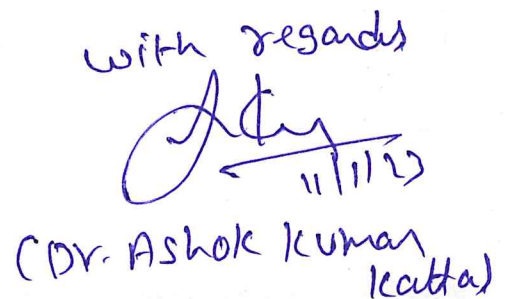 with regards
11/1/23
(Dr. Ashok Kumar
Katta)